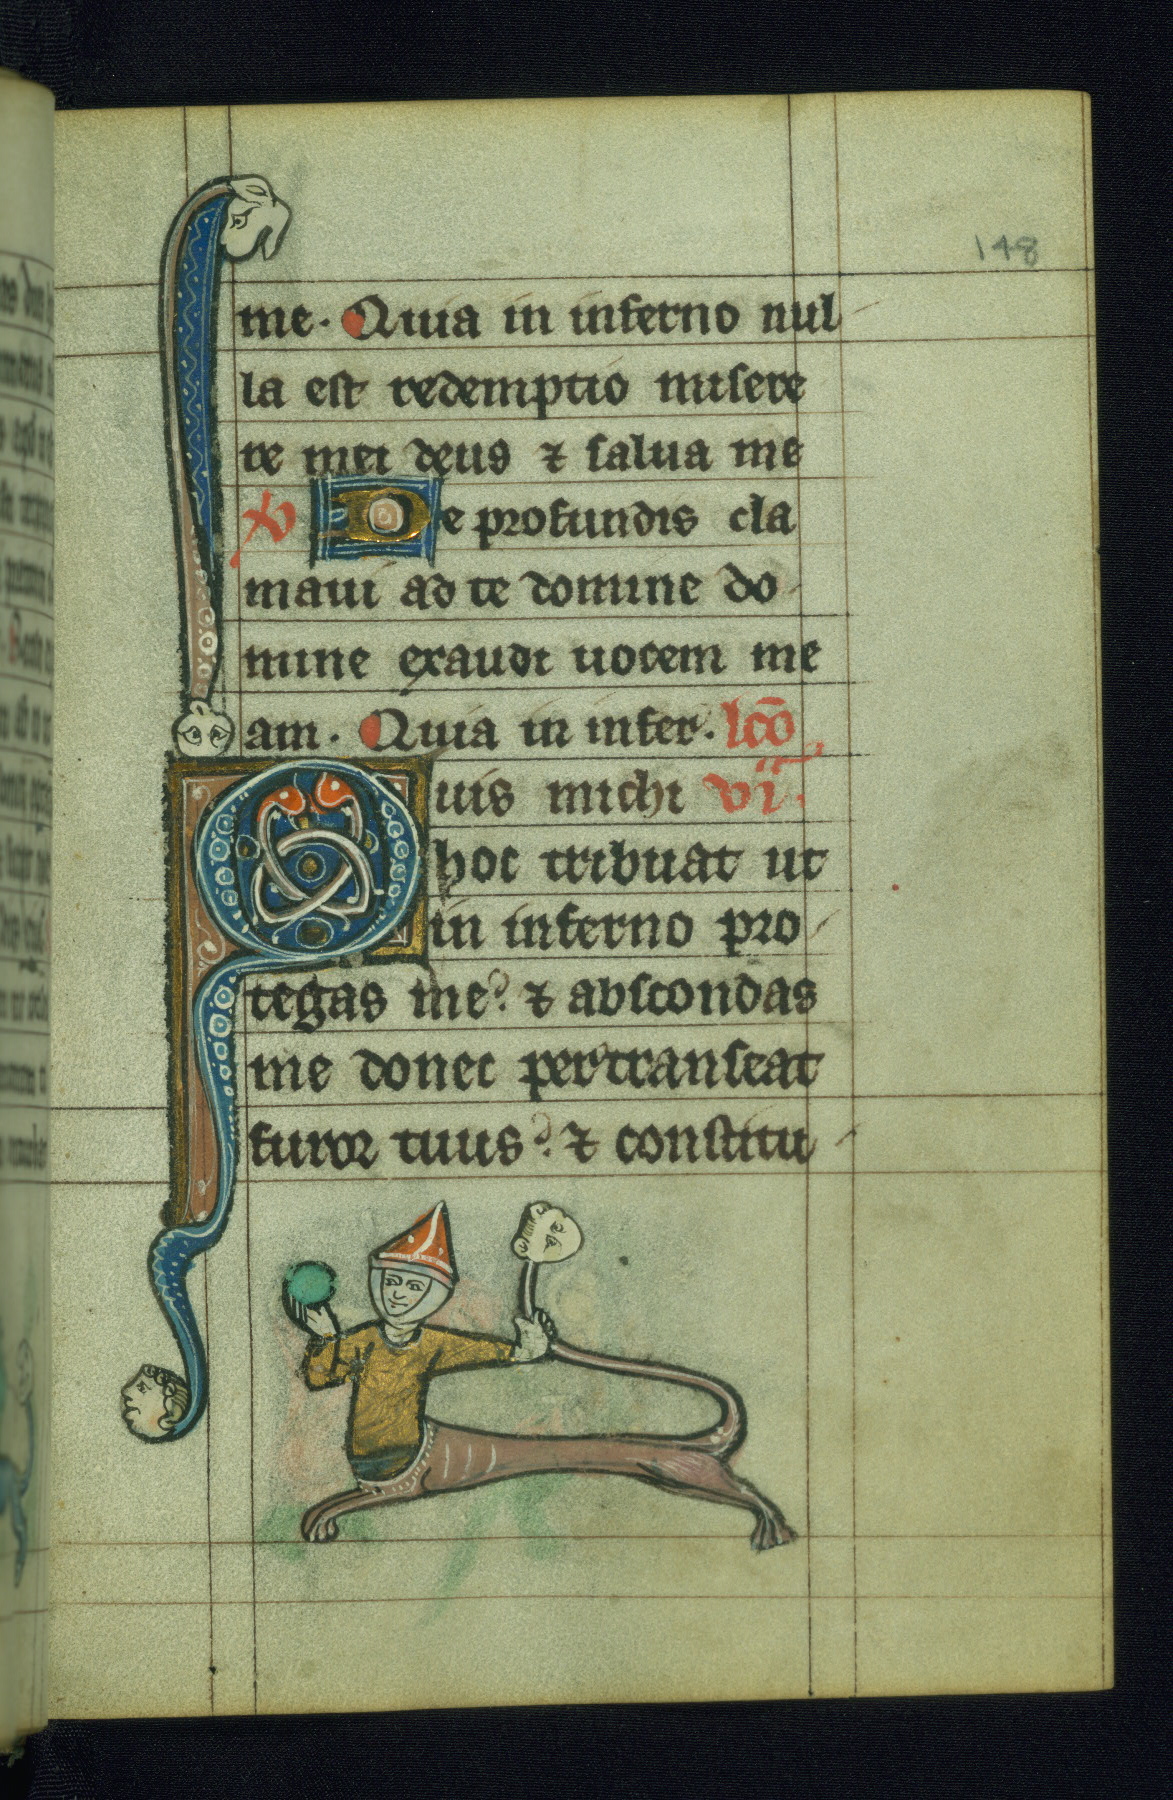 148
me. Quia in inferno nul
la est redemptio misere
re mei deus ⁊ salua me
V De profundis cla
maui ad te domine do
mine exaudi uocem me
am. Quia in infer. lc̄o
Quis michi vi.ᵃ
hoc tribuat ut
in inferno pro
tegas me? ⁊ abscondas
me donec pertranseat
furor tuus? ⁊ constitu